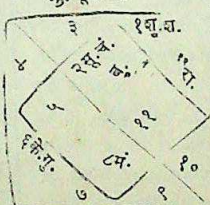 ३ १शु.श.
४ २सू.चं. १२रा.
बं.
५ ११
६के.गु. ८मं. १०
७ ९